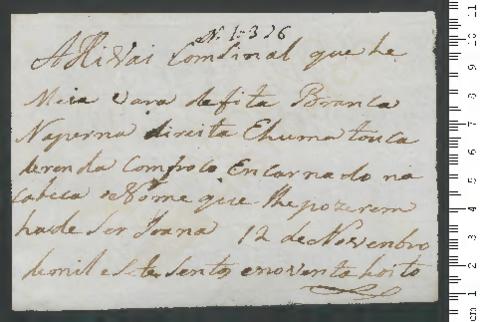 N. 1:326
Ahi Vai Comsinal que he
Meia vara defita Branca
Naperna direita Ehuma touca
derenda Compoco Encarnado na
cabeca o Nome que lhepozerem
hade Ser Joana 12 de Novembro
demil e Sete Sentos enoventa hoito
cm 1 2 3 4 5 6 7 8 9 10 11